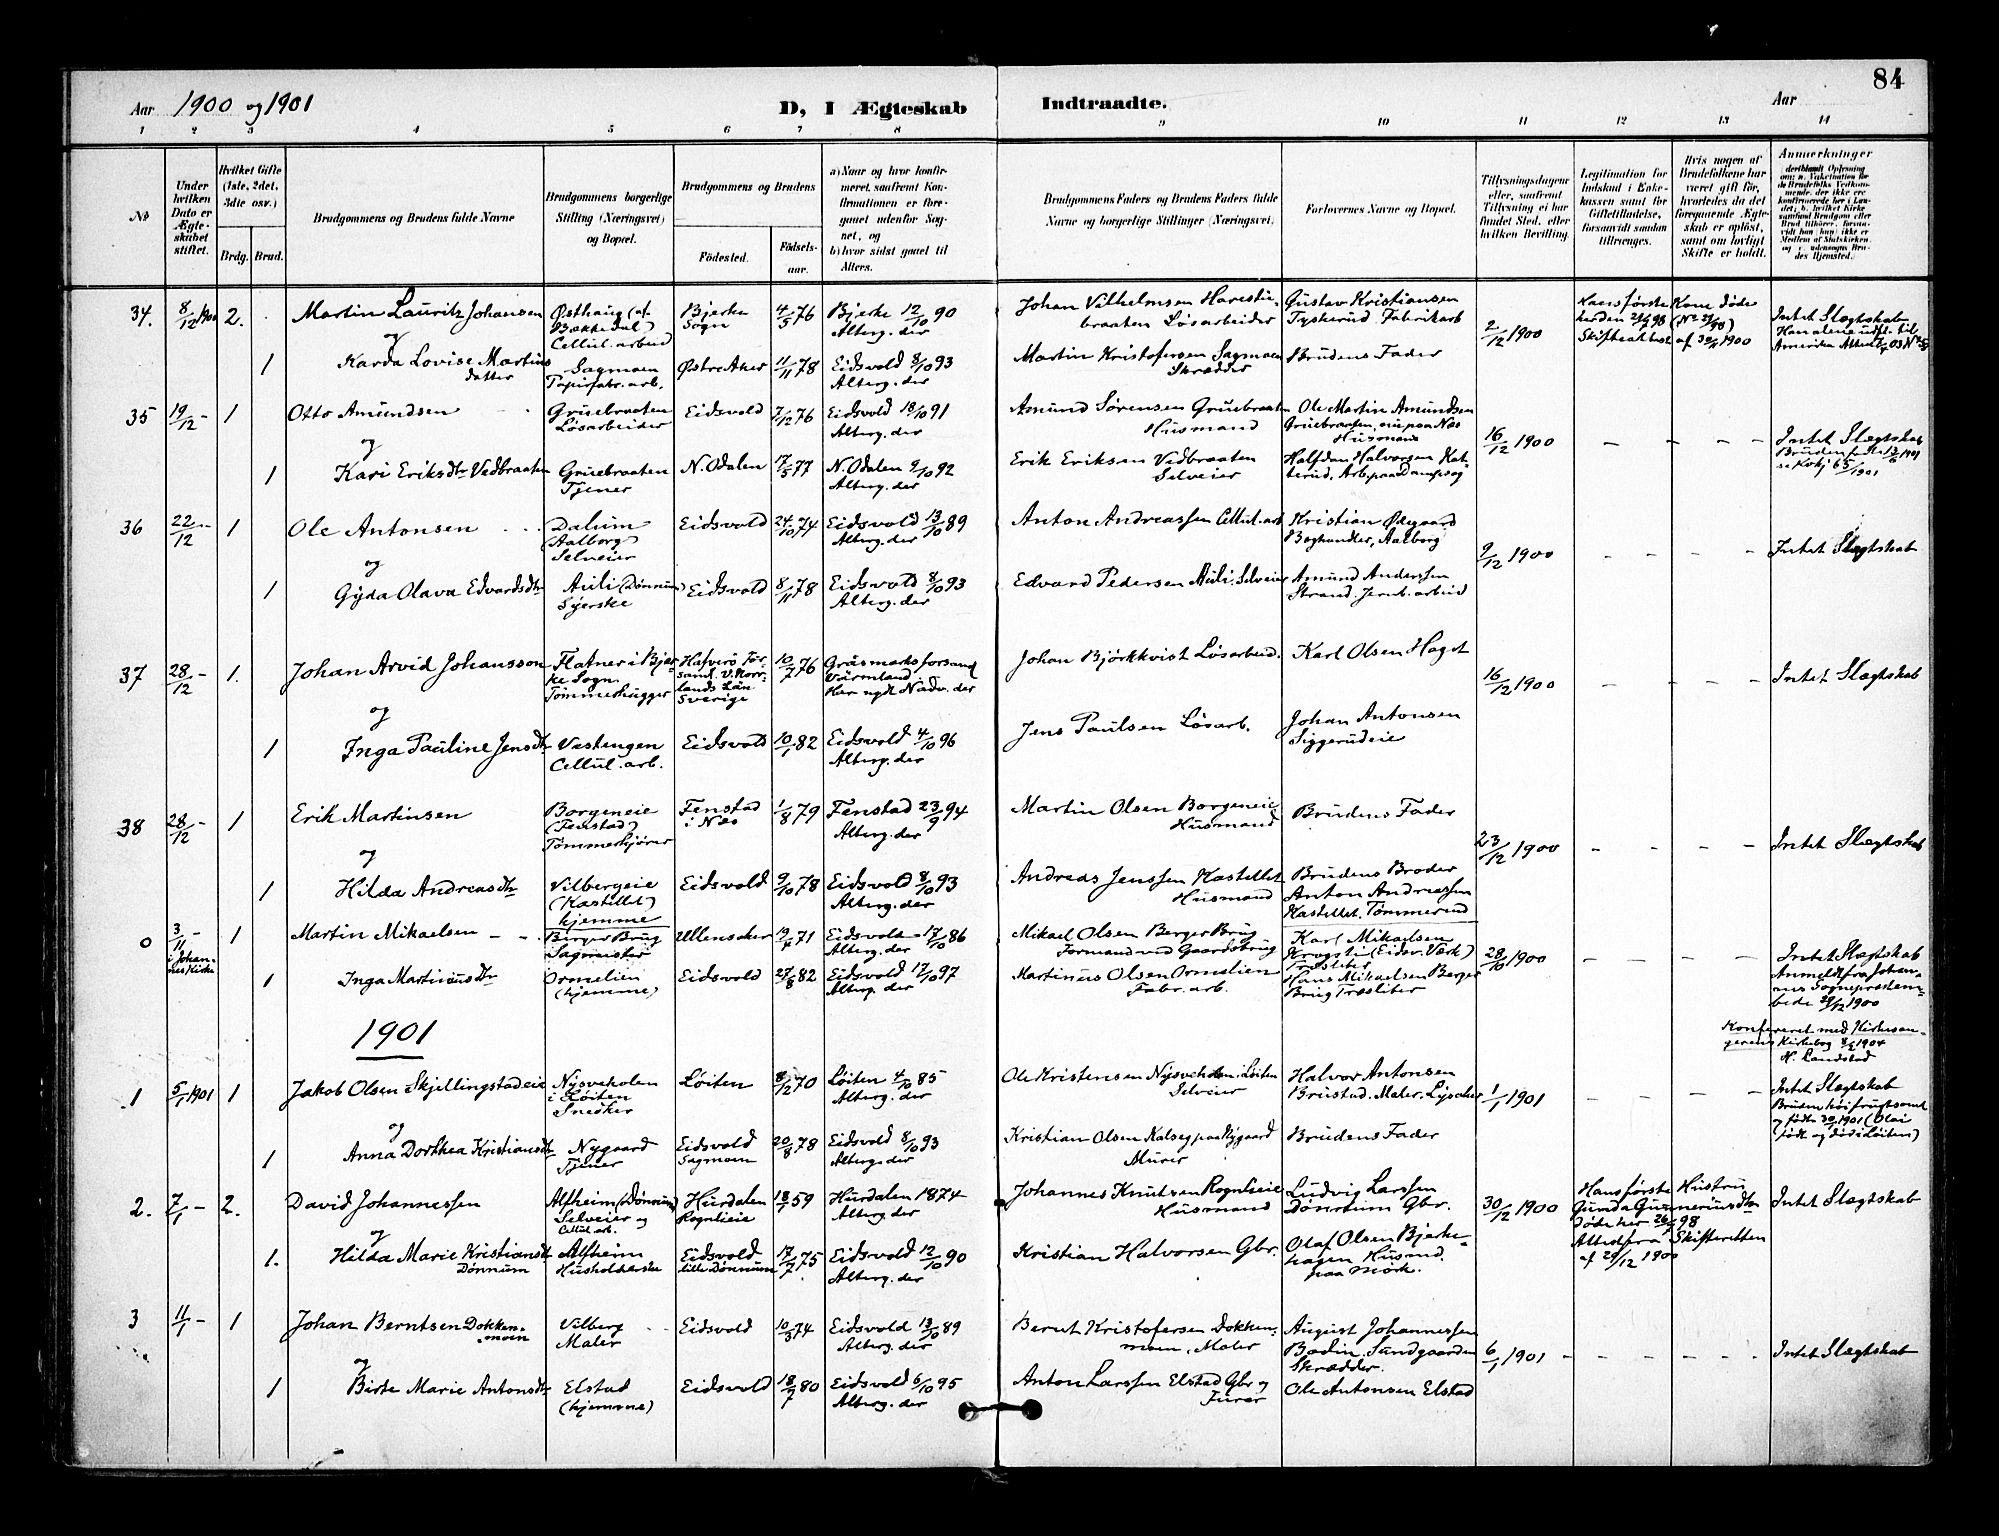 84
Aar 1900 og 1901 D, I Ægteskab Indtraadte. Aar
1 2 3 4 5 6 7 8 9 10 11 12 13 14
№
Under hvilken Dato er Ægteskabet stiftet.
Hvilket Gifte (1ste, 2det, 3dte osv.)
Brdg. Brud.
Brudgommens og Brudens fulde Navne
Brudgommens borgerlige Stilling (Næringsvei) og Bopæl.
Brudgommens og Brudens
Födested. Födsels-aar.
a) Naar og hvor konfirmeret, saafremt Konfirmationen er foregaaet udenfor Sognet, og
b) hvor sidst gaaet til Alters.
Brudgommens Faders og Brudens Faders fulde Navne og borgerlige Stillinger (Næringsvei).
Forlovernes Navne og Bopæl.
Tillysningsdagene eller, saafremt Tillysning ei har fundet Sted, efter hvilken Bevilling.
Legitimation for Indskud i Enkekassen samt for Giftetilladelse, forsaavidt saadan tiltrænges.
Hvis nogen af Brudefolkene har været gift för, hvorledes da det foregaaende Ægteskab er oplöst, samt om lovligt Skifte er holdt.
Anmerkninger
34. 8/12 1900 2. Martin Lauritz Johansen
Østhaug (af Bakkedal) Cellul. arbeid
Bjerke Sogn 4/5 76
Bjerke 12/10 90 Alterg. der
Johan Vilhelmsen Harestubraaten Løsarbeider
Gustav Kristiansen Tyskerud Fabrikarb
2/12 1900
Kone døde
af 30/11 1900
Intet Slægtskab
og
1 Karda Lovise Martinsdatter
Sagmoen Papirfabr. arb.
Østre Aker 11/11 78
Eidsvold 8/10 93 Alterg. der
Martin Kristofersen Sagmoen Skrædder
Brudens Fader
35 19/12 – 1 Otto Amundsen
Gruebraaten Løsarbeider
Eidsvold 7/12 76
Eidsvold 18/10 91 Alterg. der
Amund Sørensen Gruebraaten Husmand
Ole Martin Amundsen Gruebraaten, eie paa Næs Husmand
16/12 1900 – – – –
Intet Slægtskab
og
1 Kari Eriksdtr Vedbraaten
Gruebraaten Tjener
N. Odalen 17/5 77
N. Odalen 9/10 92 Alterg. der
Erik Eriksen Vedbraaten Selveier
Halfdan Halvorsen Katterud. Arb. paa Dampsag
36 22/12 – 1 Ole Antonsen
Dalum (Aalborg) Selveier
Eidsvold 24/10 74
Eidsvold 13/10 89 Alterg. der
Anton Andreassen Cellul. arb
Kristian Ødegaard Boghandler, Aalborg
9/12 1900 – – – –
Intet Slægtskab
og
1 Gyda Olava Edvardsdtr
Auli (Dønnum) Syerske
Eidsvold 8/11 78
Eidsvold 8/10 93 Alterg. der
Edvard Pedersen Auli. Selveier
Amund Anderssen Strand. Jernb. arbeid
37 28/12 – 1. Johan Arvid Johansson
Flatner i Bjerke Sogn. Tømmerhugger
Hafverö Församl. V. Norrlands Län Sverige 10/7 76
Gräsmarks forsaml Värmland Her nydt Nadv. der
Johan Bjørkkvist Løsarbeid.
Karl Olsen Haget
16/12 1900 – – – –
Intet Slægtskab
og
1 Inga Pauline Jensdtr
Vestengen Cellul. arb.
Eidsvold 10/1 82
Eidsvold 4/10 96 Alterg. der
Jens Paulsen Løsarb.
Johan Antonsen Siggerudeie
38 28/12 – 1 Erik Martinsen
Borgeneie (Fenstad) Tømmerkjører
Fenstad i Næs 1/8 79
Fenstad 23/9 94 Alterg. der
Martin Olsen Borgeneie Husmand
Brudens Fader
23/12 1900 – – – –
Intet Slægtskab
og
1 Hilda Andreasdtr
Vilbergeie (Kastellet) hjemme
Eidsvold 9/10 78
Eidsvold 8/10 93 Alterg. der
Andreas Jenssen Kastellet Husmand
Brudens Broder Anton Andreassen Kastellet. Tømmermd
0 3/11 – i Johannes Kirke 1 Martin Mikaelsen
Berger Brug Sagmester
Ullensaker 19/7 71
Eidsvold 17/10 86 Alterg. der
Mikael Olsen Berger Brug Formand ved Gaardsbrug
Karl Mikaelsen Krogsti (Eidsv. Værk) Træsliter
28/10 1900 – – – –
Intet Slægtskab
Anmeldt fra Johannes Sognepræstembede 29/12 1900
1 Inga Martinusdtr
Ormelien (hjemme)
Eidsvold 27/8 82
Eidsvold 17/10 97 Alterg. der
Martinus Olsen Ormelien Fabr. arb.
Hans Mikaelsen Berger Brug Træsliter
1901
Konfereret med Kirkesangerens Kirkebog 8/2 1904
N. Landstad
1 5/1 1901 1 Jakob Olsen Skjellingstadeie
Nysveholen i Løiten Snedker
Løiten 8/12 70
Løiten 4/10 85 Alterg. der
Ole Kristensen Nysveholen i Løiten Selveier
Halvor Antonsen Brustad. Maler.
1/1 1901 – – – –
Intet Slægtskab
og
1 Anna Dorthea Kristiansdtr
Nygaard Tjener
Eidsvold Sagmoen 20/8 78
Eidsvold 8/10 93 Alterg. der
Kristian Olsen Kalseg paa Nygaard Murer
Brudens Fader
2. 7/1 – 2. David Johannessen
Alfheim (Dønnum) Selveier og Cellul. arb.
Hurdalen Rognlieie 18/1 59
Hurdalen 1874 Alterg. der
Johannes Knutsen Rognlieie Husmand
Ludvig Larssen Dønnum Gbr.
30/12 1900
Hans første Hustru Gunda Gunneriusdtr døde her 26/4 98
Attest fra Skifteretten af 29/12 1900
Intet Slægtskab
og
1. Hilda Marie Kristiansdtr Dønnum
Alfheim Husholderske
Eidsvold lille Dønnum 17/7 75
Eidsvold 12/10 90 Alterg. der
Kristian Halvorsen Gbr.
Olaf Olsen Bjerkehagen Husmd. paa Mørk.
3 11/1 – 1 Johan Berntsen Dokkenmoen
Vilberg Maler
Eidsvold 10/3 74
Eidsvold 13/10 89 Alterg. der
Bernt Kristofersen Dokkenmoen, Maler
August Johannessen Bødin. Sundgaarden Skrædder.
6/1 1901 – – – –
Intet Slægtskab
og
1 Birte Marie Antonsdtr
Elstad (hjemme)
Eidsvold 18/7 80
Eidsvold 6/10 95 Alterg. der
Anton Larssen Elstad Gbr og Furer
Ole Antonsen Elstad